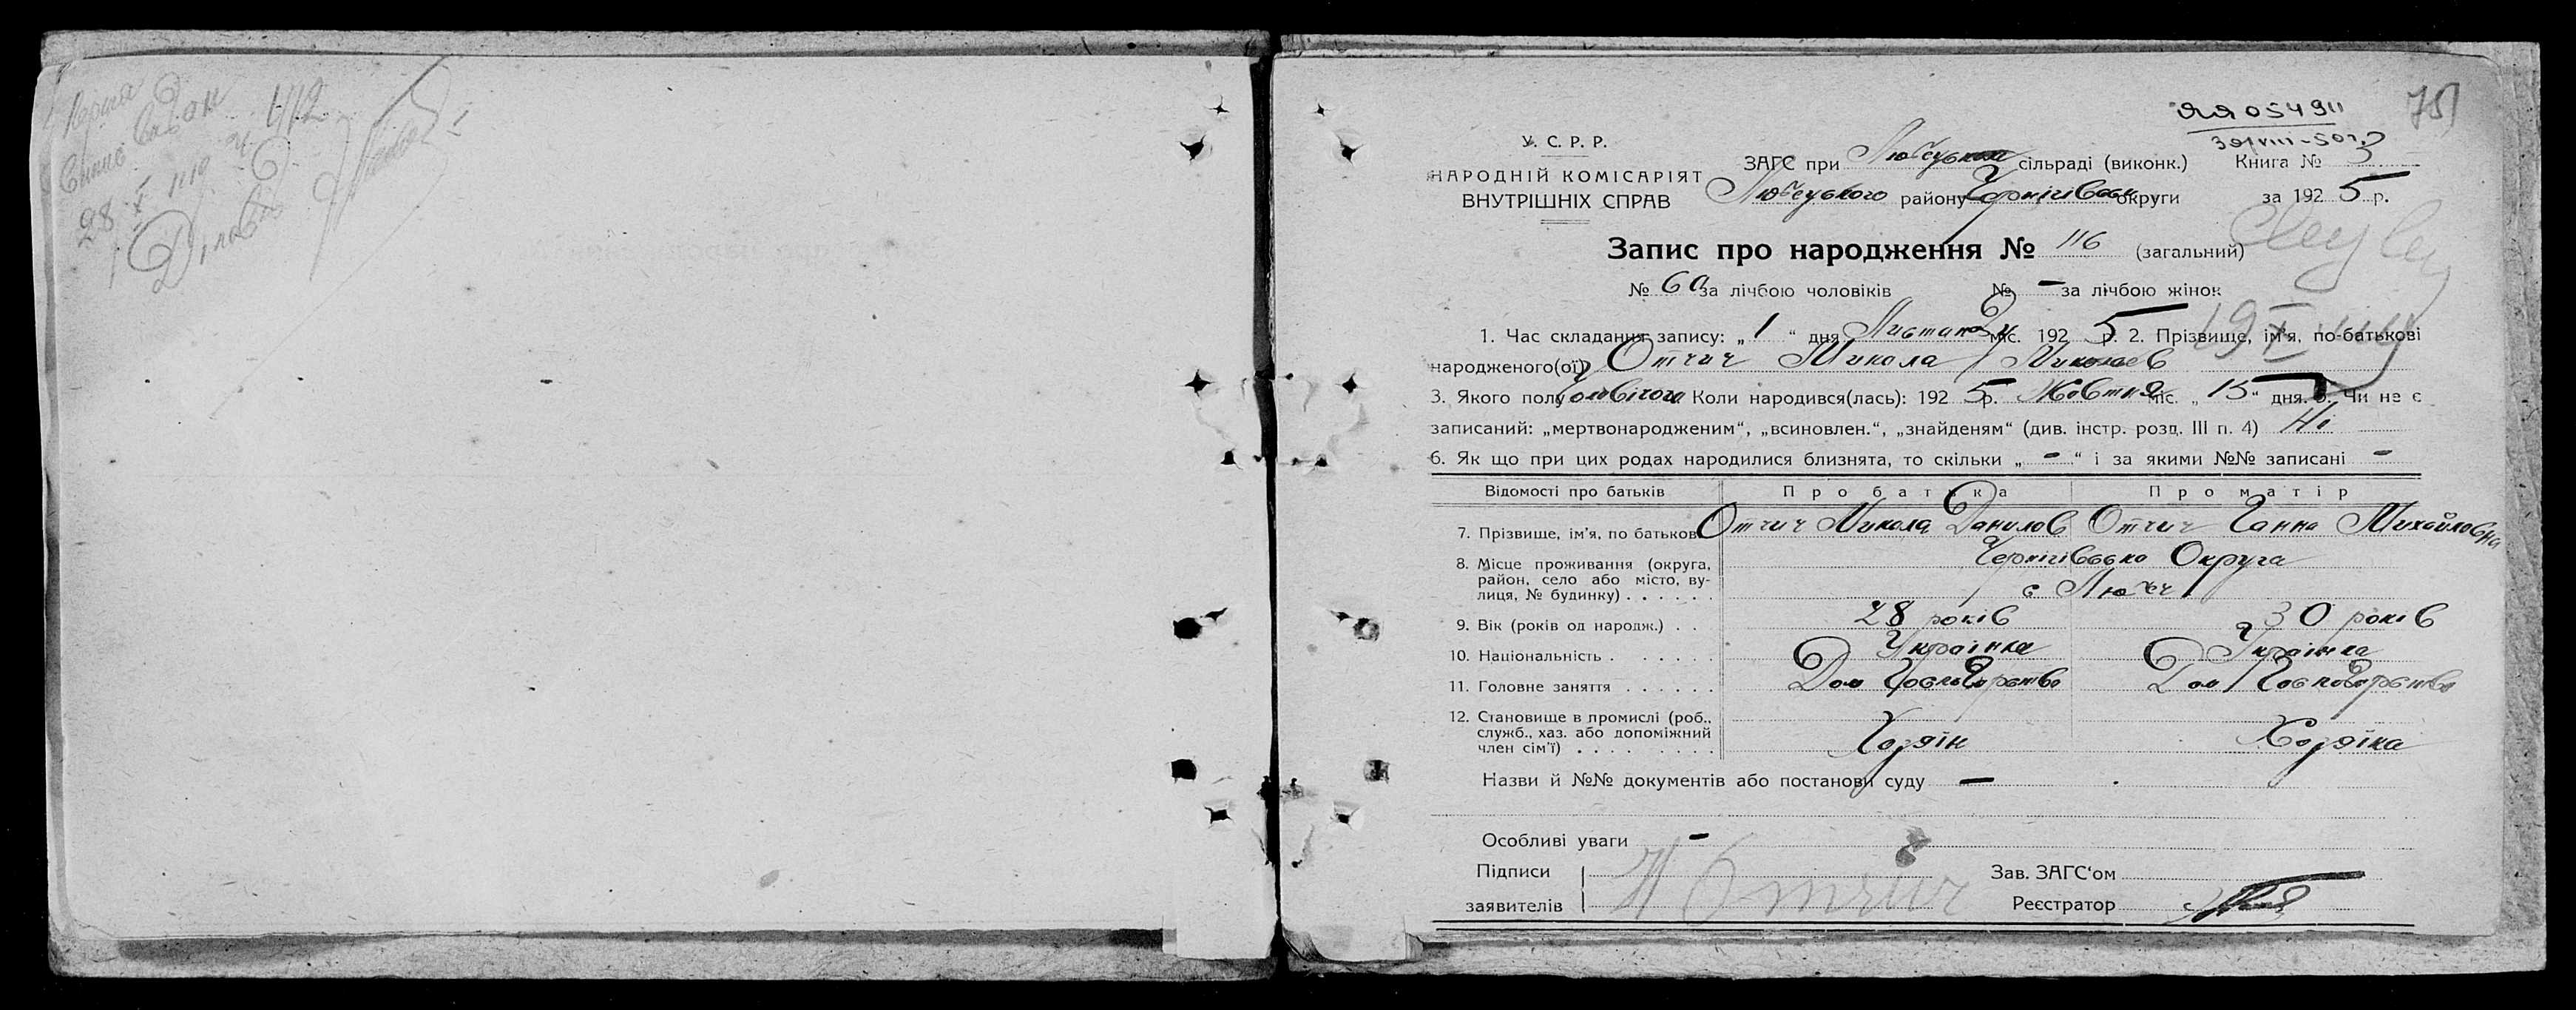 28 X
ЯЯ 054911
75
У. С. Р. Р.
НАРОДНІЙ КОМІСАРІЯТ
ВНУТРІШНІХ СПРАВ
ЗАГС при Любецькои сільраді (виконк.) Книга № 3
Любецького району Чернігівськ округи за 192 5 р.
Запис про народження № 116 (загальний)
№ 60 за лічбою чоловіків № – за лічбою жінок
1. Час складання запису: „ 1 “ дня Листопаду міс. 192 5 р. 2. Прізвище, ім'я, по-батькові
народженого(ої) Отчич Микола Миколаев
3. Якого полу чоловічого Коли народився(лась): 192 5 р. Жовтня міс. „ 15 “ дня. 5. Чи не є
записаний: „мертвонародженим“, „всиновлен.“, „знайденям“ (див. інстр. розд. III п. 4) Ні
6. Як що при цих родах народилися близнята, то скільки „ – “ і за якими №№ записані –
Відомості про батьків Про батька Про матір
7. Прізвище, ім'я, по батькові Отчич Микола Данилов Отчич Ганна Михайловна
8. Місце проживання (округа, район, село або місто, вулиця, № будинку) Чернігівсько Округа
с Любеч
9. Вік (років од народж.) 28 років 30 років
10. Національність Українка Українка
11. Головне заняття Дом Господарство Дом Господарство
12. Становище в промислі (роб., служб., хаз. або допоміжний член сім'ї) Хозяїн Хозяїка
Назви й №№ документів або постанови суду –
Особливі уваги –
Підписи
заявителів Н Отчич
Зав. ЗАГС'ом
Реєстратор